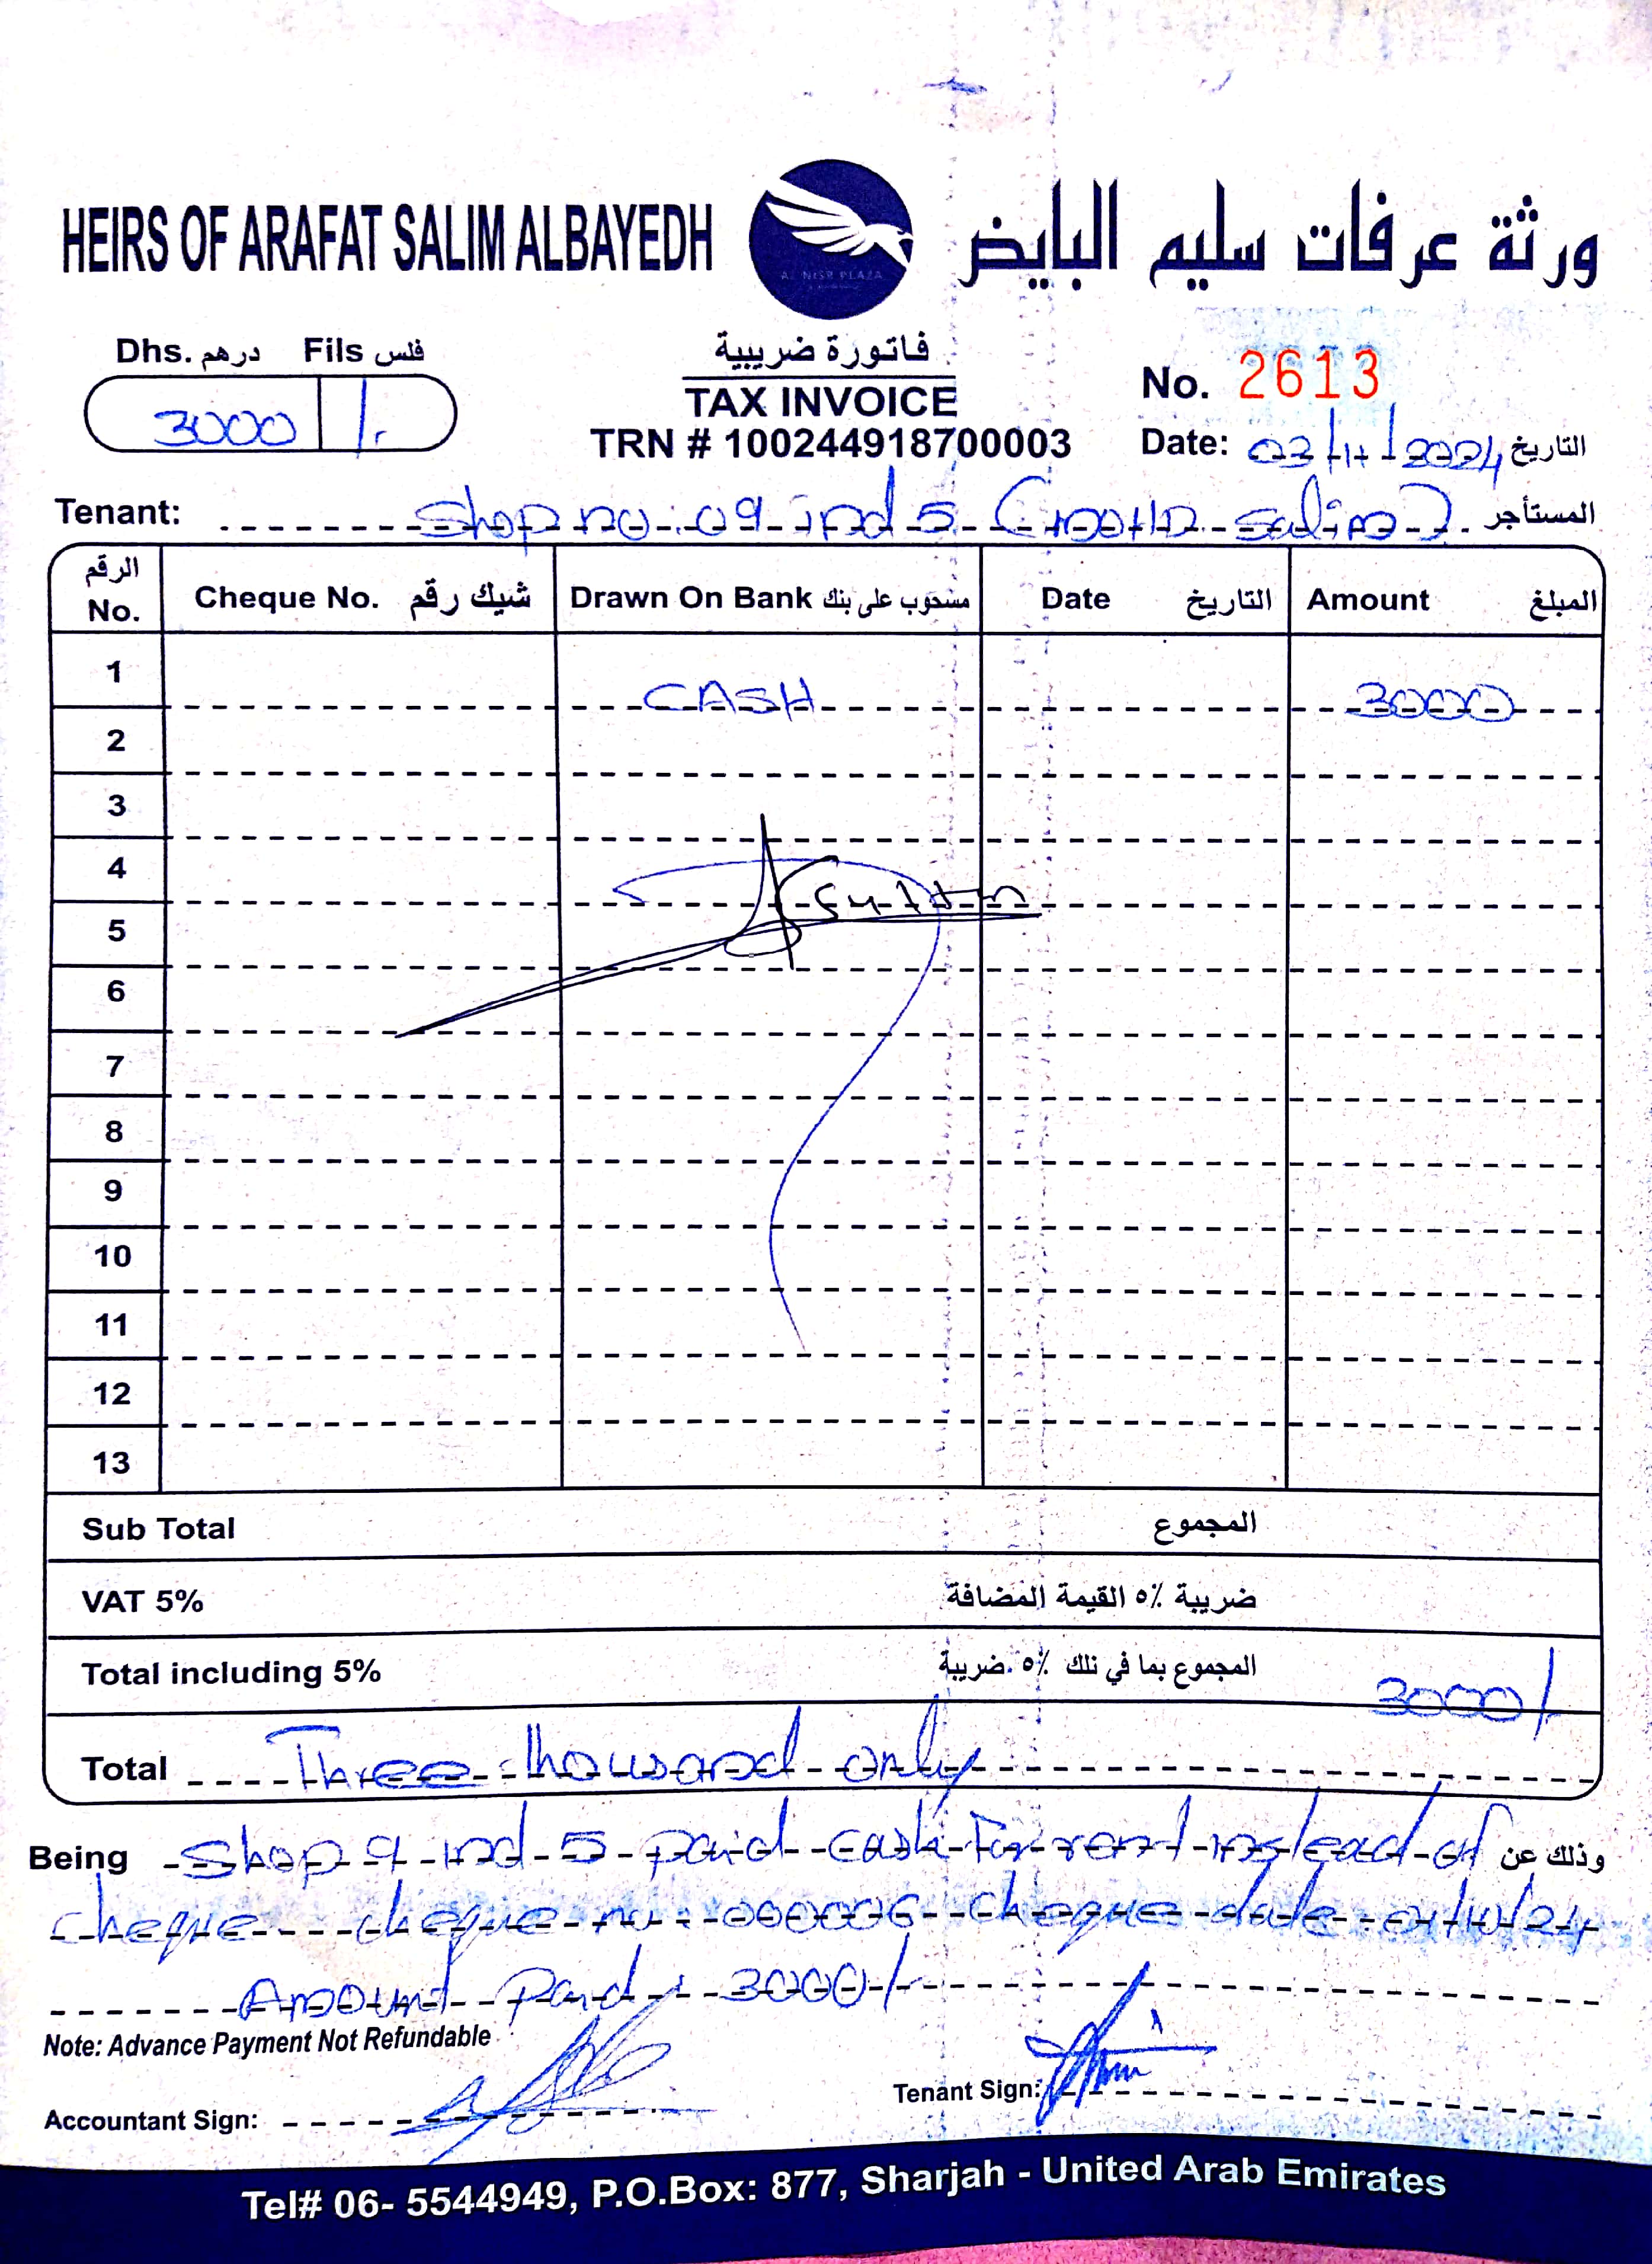 HEIRS OF ARAFAT SALIM ALBAYEDH
AL NISR PLAZA
ورثة عرفات سليم البايض
Dhs. درهم Fils فلس
3000 /-
فاتورة ضريبية
TAX INVOICE
TRN # 100244918700003
No. 2613
Date: 03/11/2024 التاريخ
Tenant: Shop no: 09 ind 5 salim المستأجر
الرقم No. Cheque No. شيك رقم Drawn On Bank مسحوب على بنك Date التاريخ Amount المبلغ
1 CASH 3000
2
3
4
Sultan
5
6
7
8
9
10
11
12
13
Sub Total المجموع
VAT 5% ضريبة ٥٪ القيمة المضافة
Total including 5% المجموع بما في نلك ٥٪ ضريبة 3000/-
Total Three thousand only
Being Shop 9 ind 5 paid cash for rent instead of وذلك عن
cheque cheque no: 000006 cheque date 01/10/24
Amount Paid: 3000/-
Note: Advance Payment Not Refundable
Accountant Sign:
Tenant Sign:
Tel# 06- 5544949, P.O.Box: 877, Sharjah - United Arab Emirates